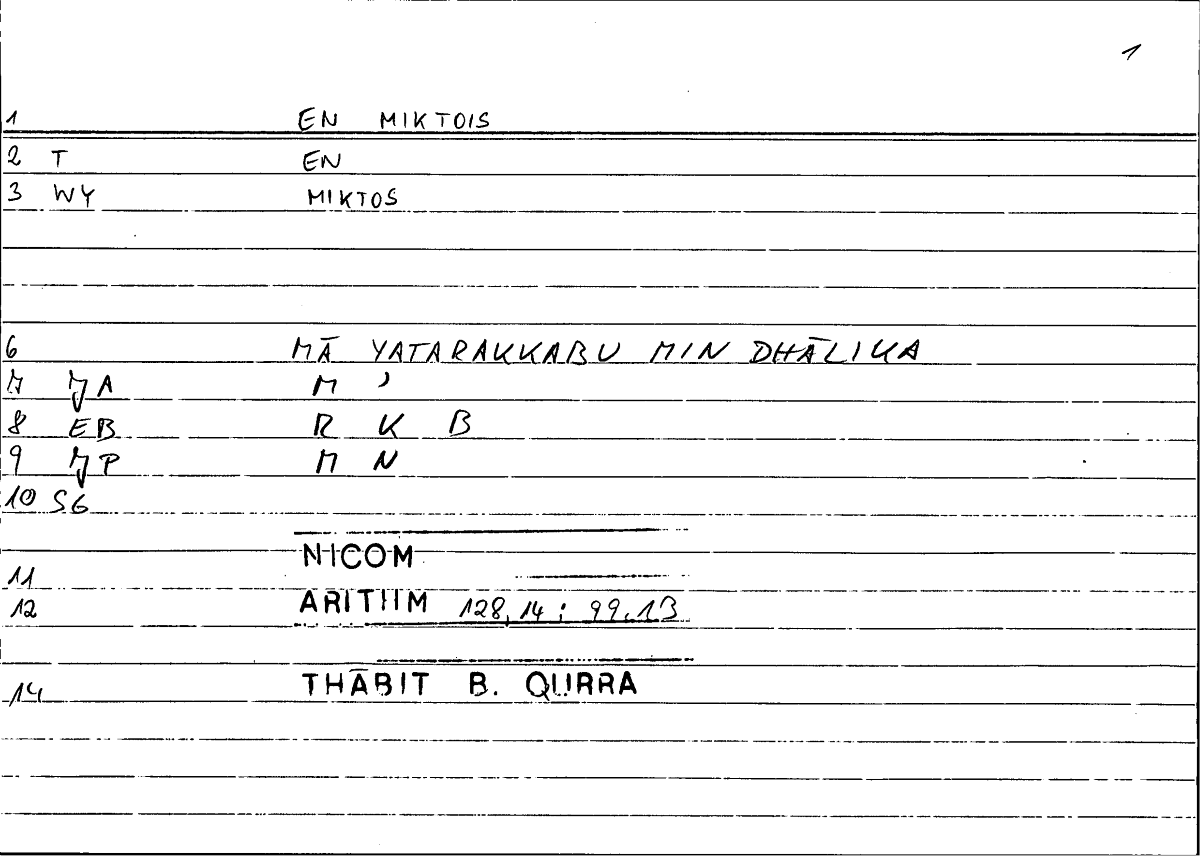 1
1 EN MIKTOIS
2 T EN
3 WY MIKTOS
6 MĀ YATARAKKABU MIN DHĀLIKA
7 JA M ʾ
8 EB R K B
9 JP M N
10 SG
11 NICOM
12 ARITHM 128,14; 99.13
14 THĀBIT B. QURRA